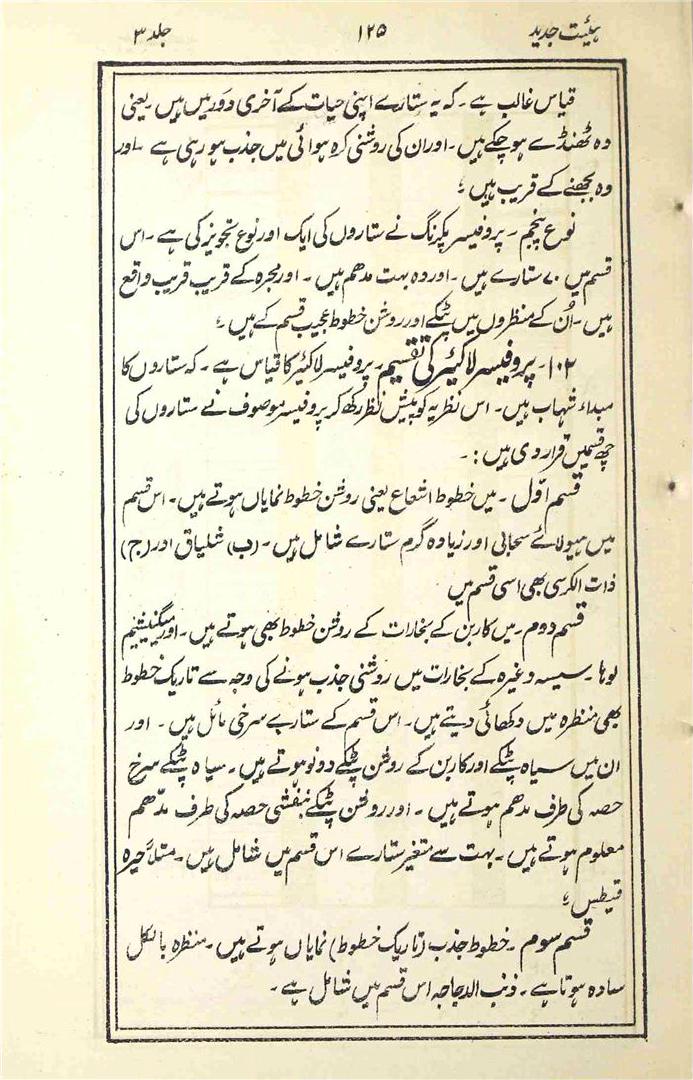 ہیئت جدید ۱۲۵ جلد ۳
قیاس غالب ہے ۔ کہ یہ ستارے اپنی حیات کے آخری دَور میں ہیں ۔ یعنی
وہ ٹھنڈے ہو چکے ہیں ۔ اور ان کی روشنی کرہ ہوائی میں جذب ہو رہی ہے ۔ اور
وہ بجھنے کے قریب ہیں ؛
نوع پنجم ۔ پروفیسر پکرنگ نے ستاروں کی ایک اور نوع تجویز کی ہے ۔ اس
قسم میں ۷۰ ستارے ہیں ۔ اور وہ بہت مدھم ہیں ۔ اور مجرہ کے قریب قریب واقع
ہیں ۔ اُن کے منظروں میں پٹکے اور روشن خطوط عجیب قسم کے ہیں ؛
۱۰۲ ۔ پروفیسر لاکئیر کی تقسیم ۔ پروفیسر لاکئیر کا قیاس ہے ۔ کہ ستاروں کا
مبداء شہاب ہیں ۔ اس نظریہ کو پیش نظر رکھ کر پروفیسر موصوف نے ستاروں کی
چھ قسمیں قرار دی ہیں : ۔
قسم اوّل ۔ میں خطوط اشعاع یعنی روشن خطوط نمایاں ہوتے ہیں ۔ اس قسم
میں ہیولائے سحابی اور زیادہ گرم ستارے شامل ہیں ۔ (ب) شلیاق اور (ج)
ذات الکرسی بھی اسی قسم میں
قسم دوم ۔ میں کاربن کے بخارات کے روشن خطوط بھی ہوتے ہیں ۔ اور میگنیشیم
لوہا ۔ سیسہ وغیرہ کے بخارات میں روشنی جذب ہونے کی وجہ سے تاریک خطوط
بھی منظرہ میں دکھائی دیتے ہیں ۔ اس قسم کے ستارے سرخی مائل ہیں ۔ اور
ان میں سیاہ پٹکے اور کاربن کے روشن پٹکے دونو ہوتے ہیں ۔ سیاہ پٹکے سرخ
حصہ کی طرف مدھم ہوتے ہیں ۔ اور روشن پٹکے بنفشی حصہ کی طرف مدّھم
معلوم ہوتے ہیں ۔ بہت سے متغیر ستارے اس قسم میں شامل ہیں ۔ مثلاً حیرہ
قیطس ؛
قسم سوم ۔ خطوط جذب (تاریک خطوط) نمایاں ہوتے ہیں ۔ منظرہ بالکل
سادہ ہوتا ہے ۔ ذنب الدجاجہ اس قسم میں شامل ہے ۔